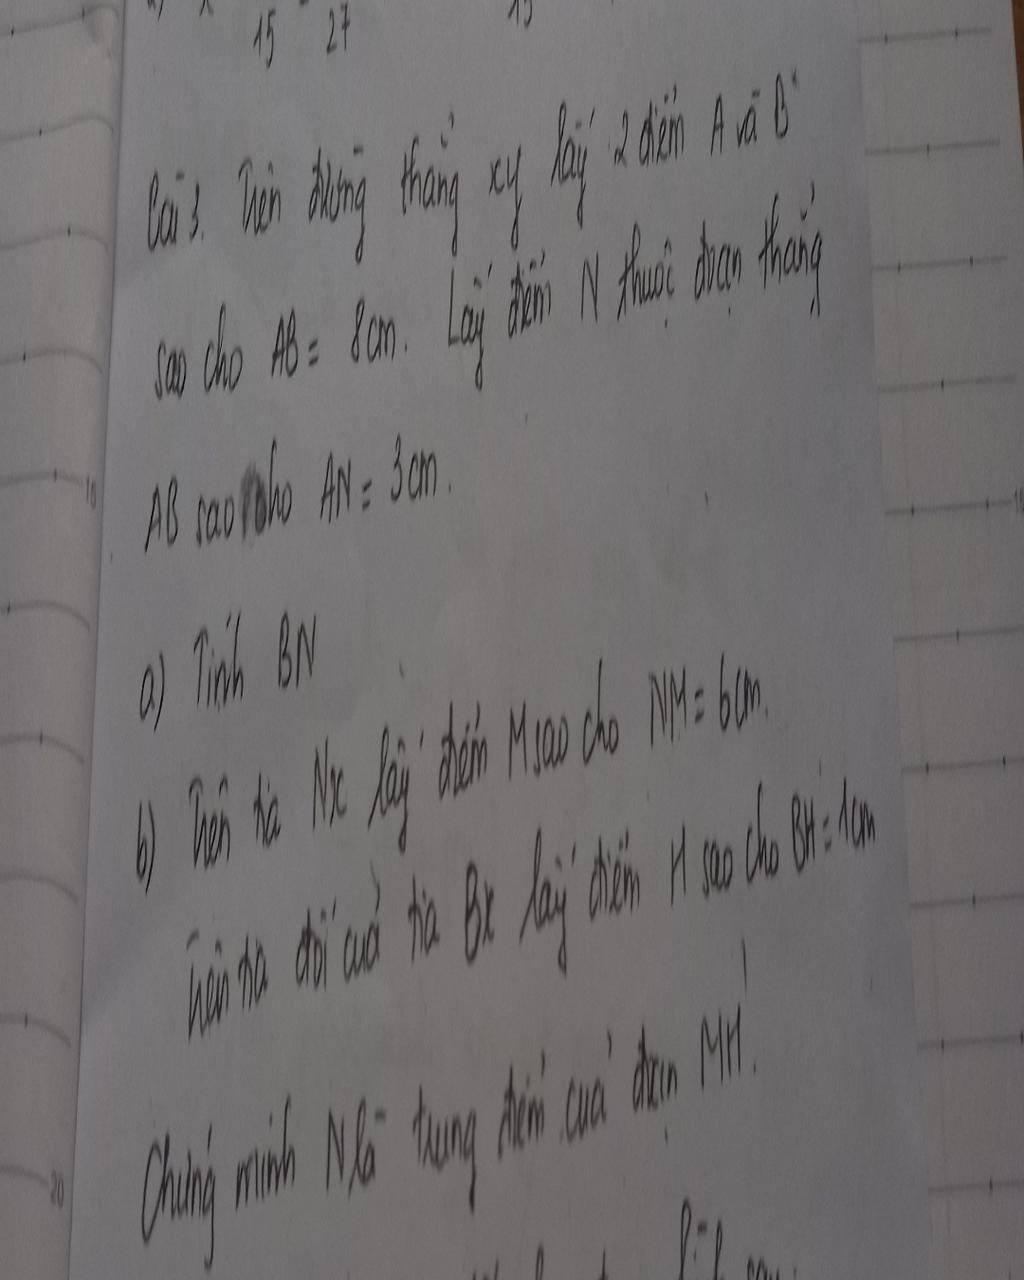 15 27 15
Bài 3. Trên đường thẳng xy lấy 2 điểm A và B
sao cho AB = 8cm. Lấy điểm N thuộc đoạn thẳng
AB sao cho AN = 3cm.
a) Tính BN
b) Trên tia Nx lấy điểm M sao cho NM = 6cm.
Trên tia đối của tia Bx lấy điểm H sao cho BH = 1cm
Chứng minh N là trung điểm của đoạn MH.